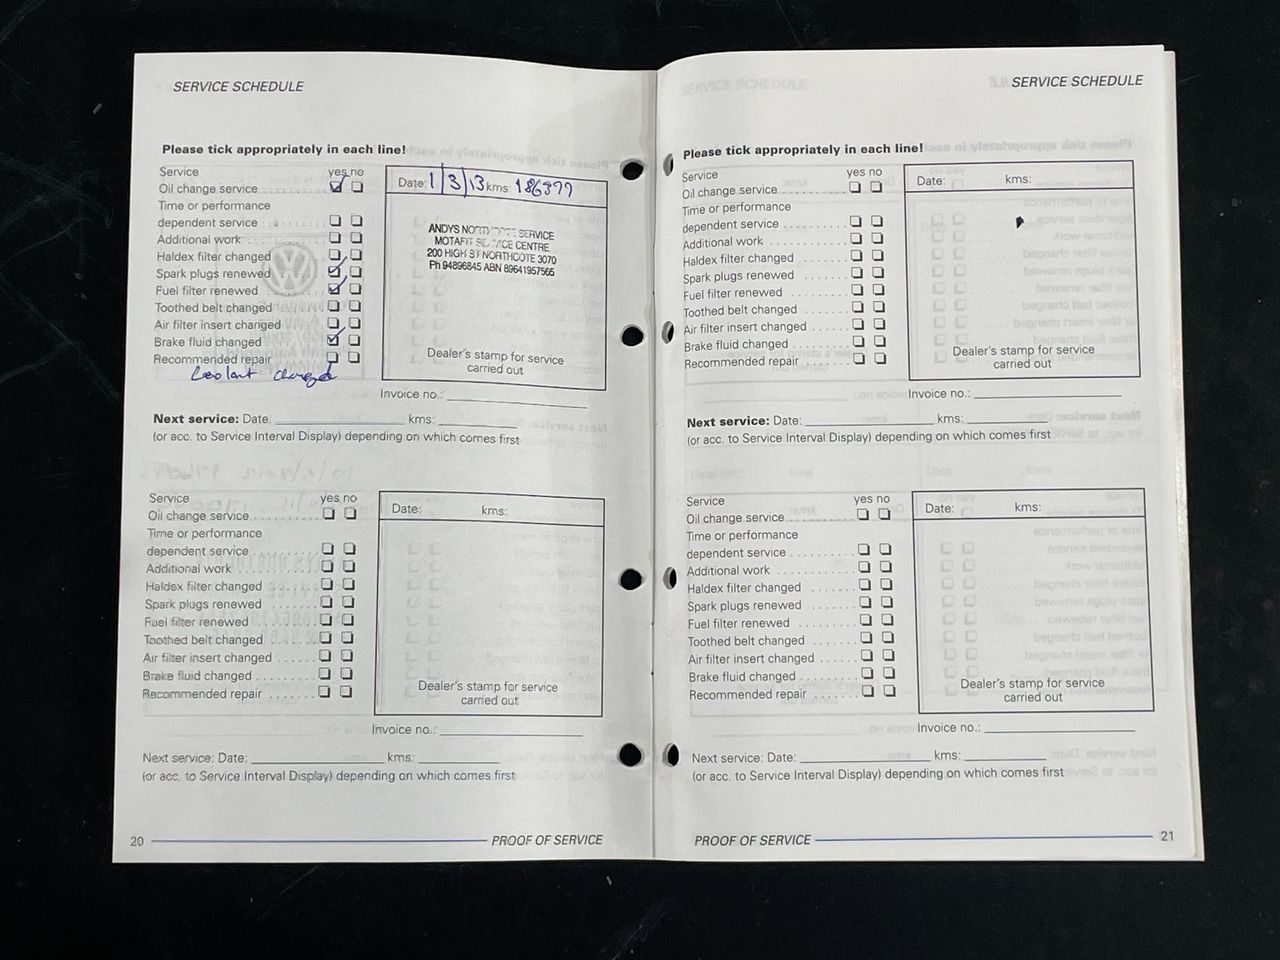 SERVICE SCHEDULE
Please tick appropriately in each line!
Service yes no
Oil change service
Time or performance
dependent service
Additional work
Haldex filter changed
Spark plugs renewed
Fuel filter renewed
Toothed belt changed
Air filter insert changed
Brake fluid changed
Recommended repair
Coolant changed
Date: 1/3/13 kms: 186377
ANDYS SERVICE
MOTAFIT CENTRE
200 HIGH ST NORTHCOTE 3070
Ph 94896845 ABN 89641957565
Dealer's stamp for service
carried out
Invoice no.:
Next service: Date: kms:
(or acc. to Service Interval Display) depending on which comes first
Service yes no
Oil change service
Time or performance
dependent service
Additional work
Haldex filter changed
Spark plugs renewed
Fuel filter renewed
Toothed belt changed
Air filter insert changed
Brake fluid changed
Recommended repair
Date: kms:
Dealer's stamp for service
carried out
Invoice no.:
Next service: Date: kms:
(or acc. to Service Interval Display) depending on which comes first
20 PROOF OF SERVICE
SERVICE SCHEDULE
Please tick appropriately in each line!
Service yes no
Oil change service
Time or performance
dependent service
Additional work
Haldex filter changed
Spark plugs renewed
Fuel filter renewed
Toothed belt changed
Air filter insert changed
Brake fluid changed
Recommended repair
Date: kms:
Dealer's stamp for service
carried out
Invoice no.:
Next service: Date: kms:
(or acc. to Service Interval Display) depending on which comes first
Service yes no
Oil change service
Time or performance
dependent service
Additional work
Haldex filter changed
Spark plugs renewed
Fuel filter renewed
Toothed belt changed
Air filter insert changed
Brake fluid changed
Recommended repair
Date: kms:
Dealer's stamp for service
carried out
Invoice no.:
Next service: Date: kms:
(or acc. to Service Interval Display) depending on which comes first
PROOF OF SERVICE 21